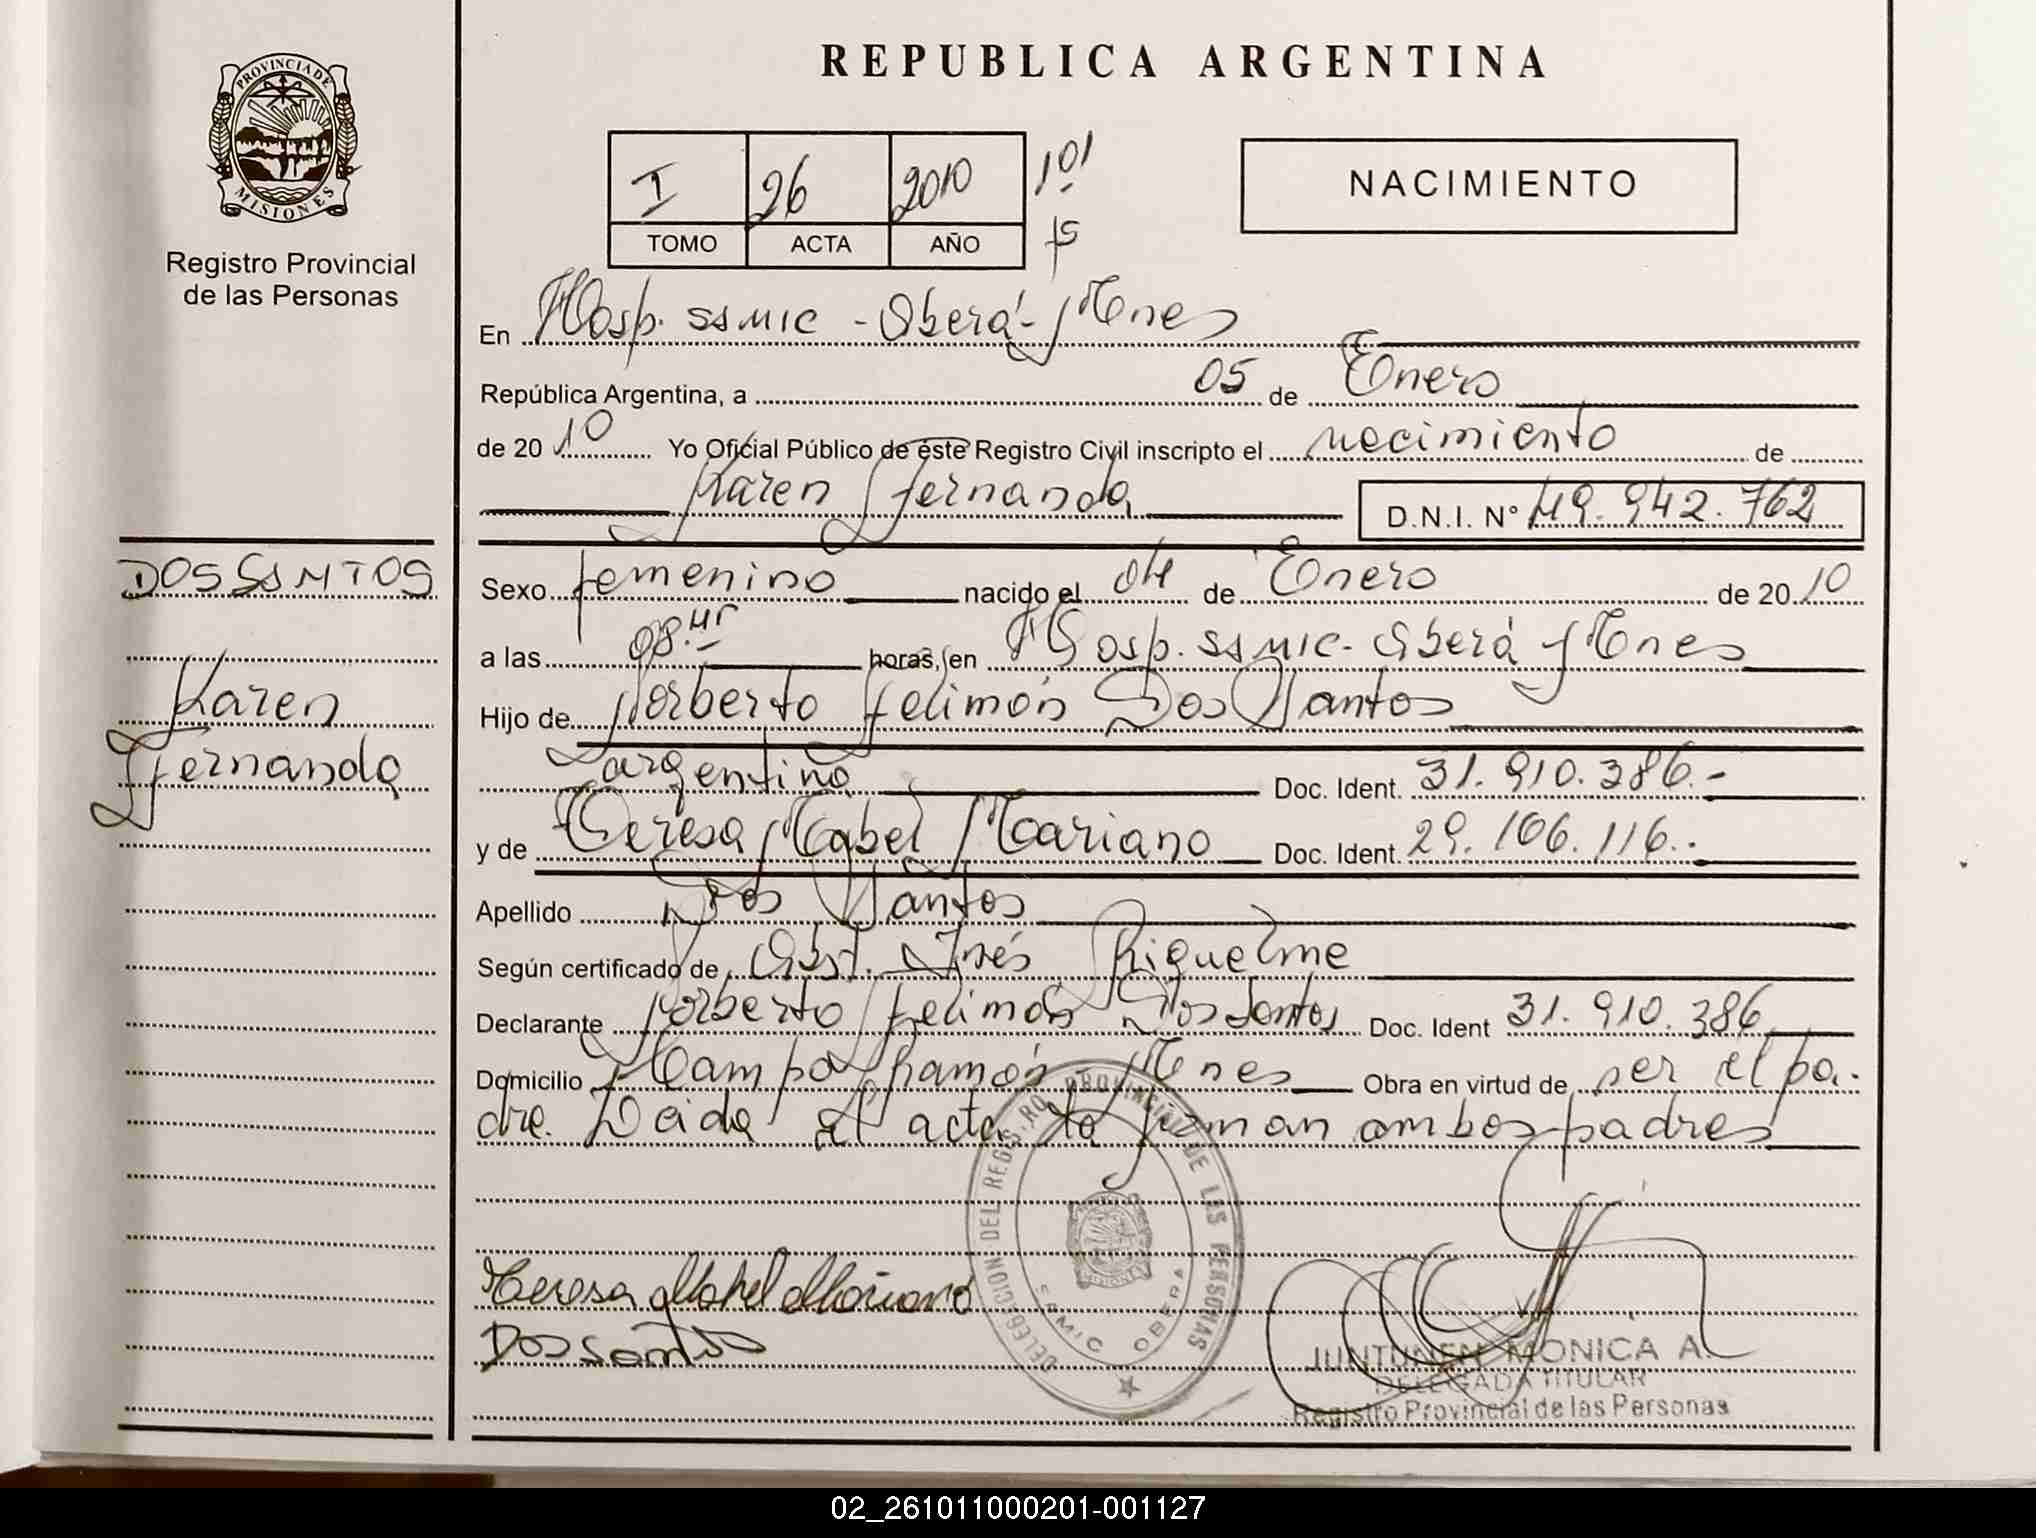 REPUBLICA ARGENTINA
PROVINCIA DE
MISIONES
Registro Provincial
de las Personas
I 26 2010 101
TOMO ACTA AÑO
NACIMIENTO
En Hosp. SSMIC - Oberá - Mnes
República Argentina, a 05 de Enero
de 2010 Yo Oficial Público de éste Registro Civil inscripto el nacimiento de
Karen Fernanda D.N.I. N° 49.942.762
DOS SANTOS
Karen
Fernanda
Sexo femenino nacido el 04 de Enero de 2010
a las 08. horas, en Hosp. SSMIC - Oberá Mnes
Hijo de Norberto Felimón Dos Santos
argentino Doc. Ident. 31.910.386.-
y de Teresa Mabel Mariano Doc. Ident. 29.106.116.-
Apellido Dos Santos
Según certificado de Obst. Inés Riquelme
Declarante Norberto Felimón Dos Santos Doc. Ident 31.910.386
Domicilio Campo Ramón - Mnes Obra en virtud de ser el pa-
dre. Leida el acta la firman ambos padres
Teresa Mabel Mariano
Dos Santos
DELEGACION DEL REGIS.RO PROVINCIAL DE LAS PERSONAS
MISIONES
OBERA
JUNTUNEN MONICA A.
DELEGADA TITULAR
Registro Provincial de las Personas
02_261011000201-001127